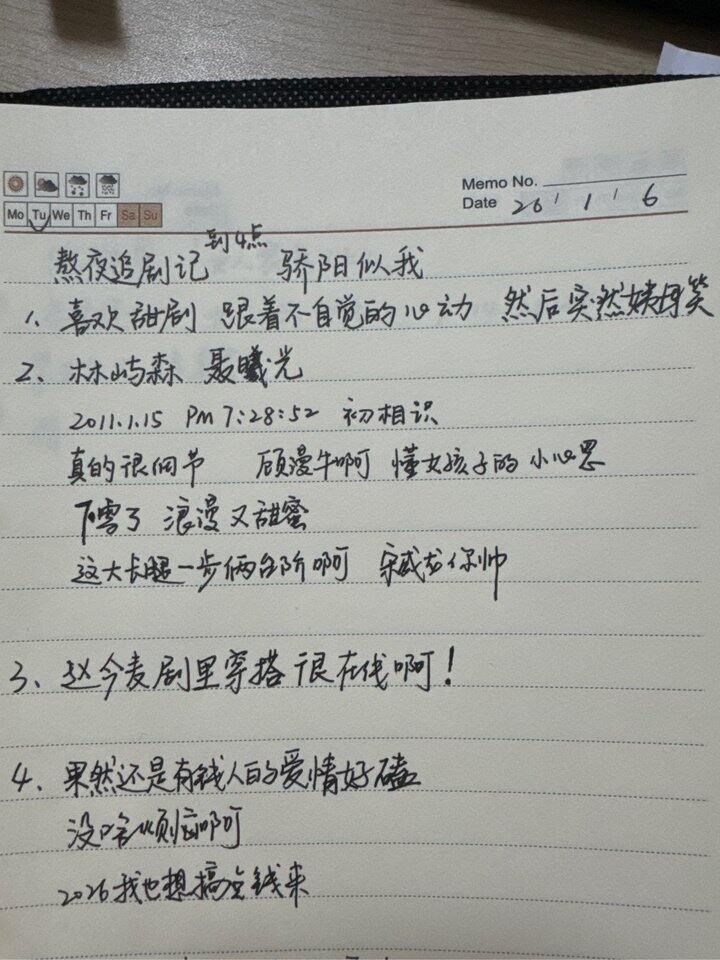 Memo No.
Mo Tu We Th Fr Sa Su
Date 26 / 1 / 6
熬夜追剧记 到4点 骄阳似我
1、喜欢甜剧 跟着不自觉的心动 然后突然姨母笑
2、林屿森 聂曦光
2011.1.15 PM 7:28:52 初相识
真的很细节 顾漫牛啊 懂女孩子的小心思
下雪了 浪漫又甜蜜
这大长腿一步俩台阶啊 宋威龙你帅
3、赵今麦剧里穿搭很在线啊!
4、果然还是有钱人的爱情好磕
没啥烦恼啊
2026我也想搞点钱来